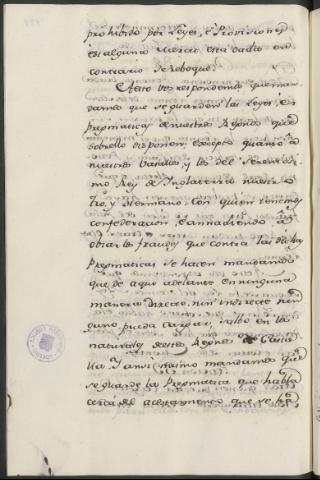 prohibido por Leyes, e Provisiones
e si alguna nuestra esta dada en
contrario se reboque.
A esto vos respondemos que man
damos que se guarden las Leyes, e
pregmaticas de nuestros Reynos que
sobrello disponen, excepto quanto a
nuestros basallos y los del Serenissi
mo Rey de Inglaterra nuestro
tio, y Hermano, con quien tenemos
confederacion, e annadiendo
obiar los fraudes que contra las dichas
Pregmaticas se hacen mandamos
que de aqui adelante en ninguna
manera directe, nin indirecte nin
guno pueda cargar, salbo en los
naturales destos Reynos de Casti
lla. Y ansi mismo mandamos que
se guarde la Pregmatica que habla
cerca del
que se